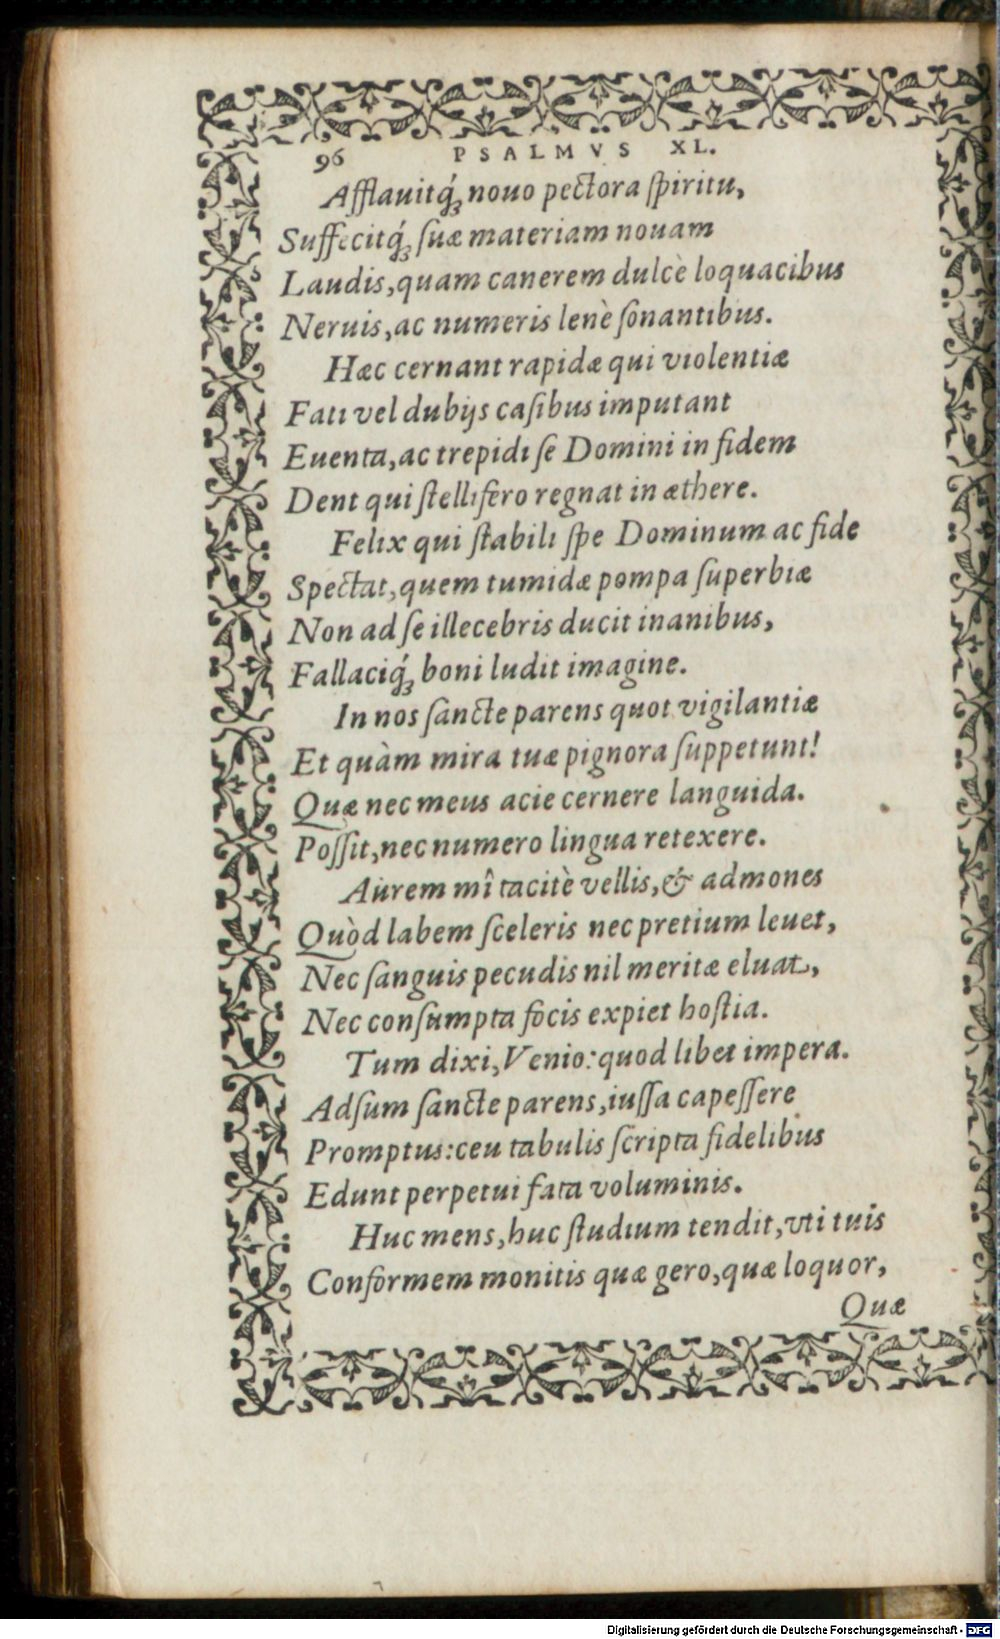 96 PSALMVS XL.
Afflauitq́; nouo pectora ſpiritu,
Suffecitq́; ſuæ materiam nouam
Laudis, quam canerem dulcè loquacibus
Neruis, ac numeris lenè ſonantibus.
Hæc cernant rapidæ qui violentiæ
Fati vel dubijs caſibus imputant
Euenta, ac trepidi ſe Domini in fidem
Dent qui ſtellifero regnat in æthere.
Felix qui ſtabili ſpe Dominum ac fide
Spectat, quem tumidæ pompa ſuperbiæ
Non ad ſe illecebris ducit inanibus,
Fallaciq́; boni ludit imagine.
In nos ſancte parens quot vigilantiæ
Et quàm mira tuæ pignora ſuppetunt!
Quæ nec meus acie cernere languida.
Poſſit, nec numero lingua retexere.
Aurem mî tacitè vellis, & admones
Quòd labem ſceleris nec pretium leuet,
Nec ſanguis pecudis nil meritæ eluat,
Nec conſumpta focis expiet hoſtia.
Tum dixi, Venio: quod libet impera.
Adſum ſancte parens, iuſſa capeſſere
Promptus: ceu tabulis ſcripta fidelibus
Edunt perpetui fata voluminis.
Huc mens, huc ſtudium tendit, vti tuis
Conformem monitis quæ gero, quæ loquor,
Quæ
Digitalisierung gefördert durch die Deutsche Forschungsgemeinschaft - DFG